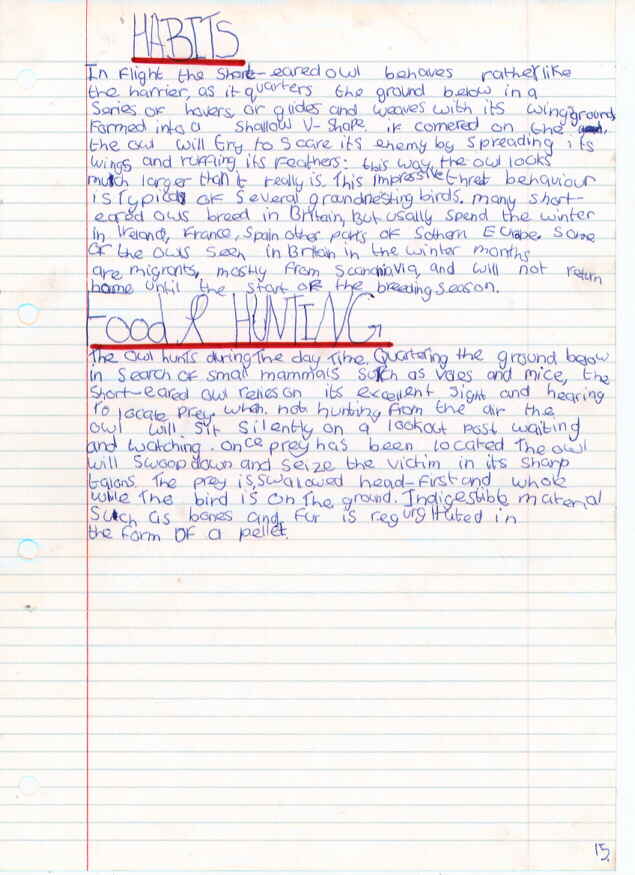 HABITS
In Flight the Short-eared owl behaves rather like
the harrier, as it quarters the ground below in a
Series of hovers, or glides and weaves with its wing
Formed into a Shallow V-shape. if cornered on the ground,
the owl will try to scare its enemy by spreading its
wings and ruffling its feathers: this way, the owl looks
much larger than it really is. This impressive thret behaviour
is typical of several grandnesting birds. many short-
eared owls breed in Britain, But usally spend the winter
in Ireland, France, Spain other parts of Sothern Europe. Some
of the owls seen in Britain in the winter months
are migrants, mostly from Scandnavia, and will not return
home until the start of the breeding season.
Food & HUNTING
The owl hunts during The day Time. Quartering the ground below
in Search of small mammals such as voles and mice, the
Short-eared owl relies on its excellent sight and hearing
To locate prey. when not hunting from the air the
owl will sit silently on a lookout post waiting
and watching. once prey has been located The owl
will swoop down and seize the victim in its sharp
talons. The prey is swalowed head-first and whole
while The bird is on The ground. Indigestible material
Such as bones and fur is regurgitated in
the form of a pellet.
15.